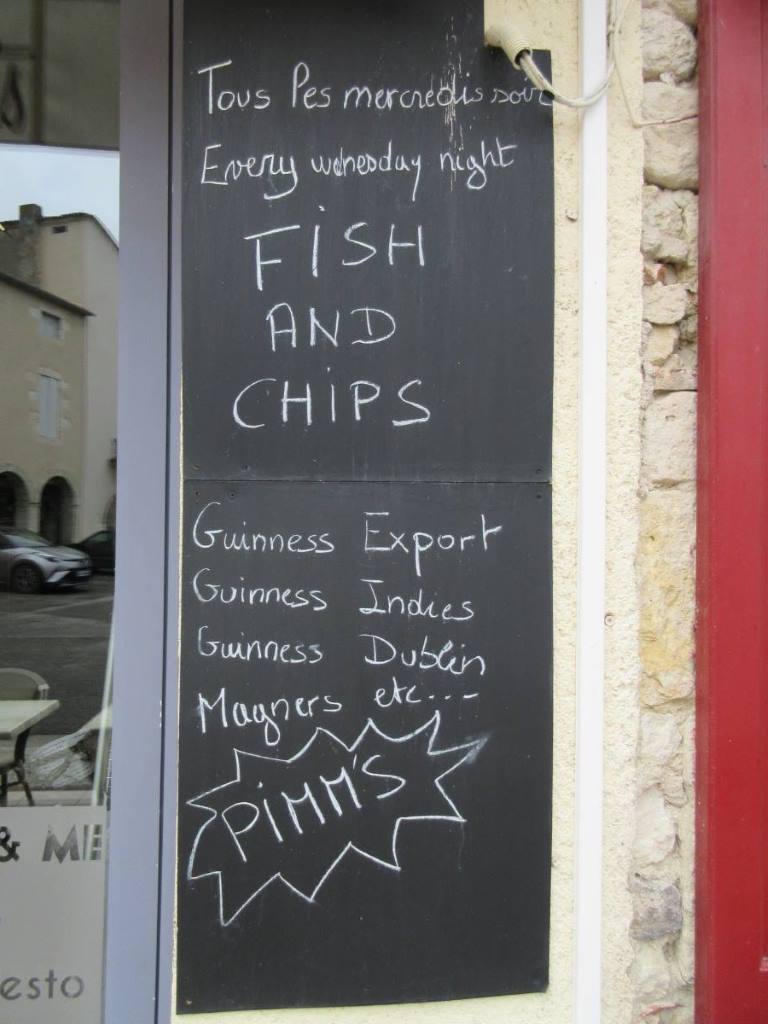 Tous les mercredis soir
Every wdnesday night
FiSH
AND
CHiPS
Guinness Export
Guinness Indies
Guinness Dublin
Magners etc----
PiMM'S
& ME
esto